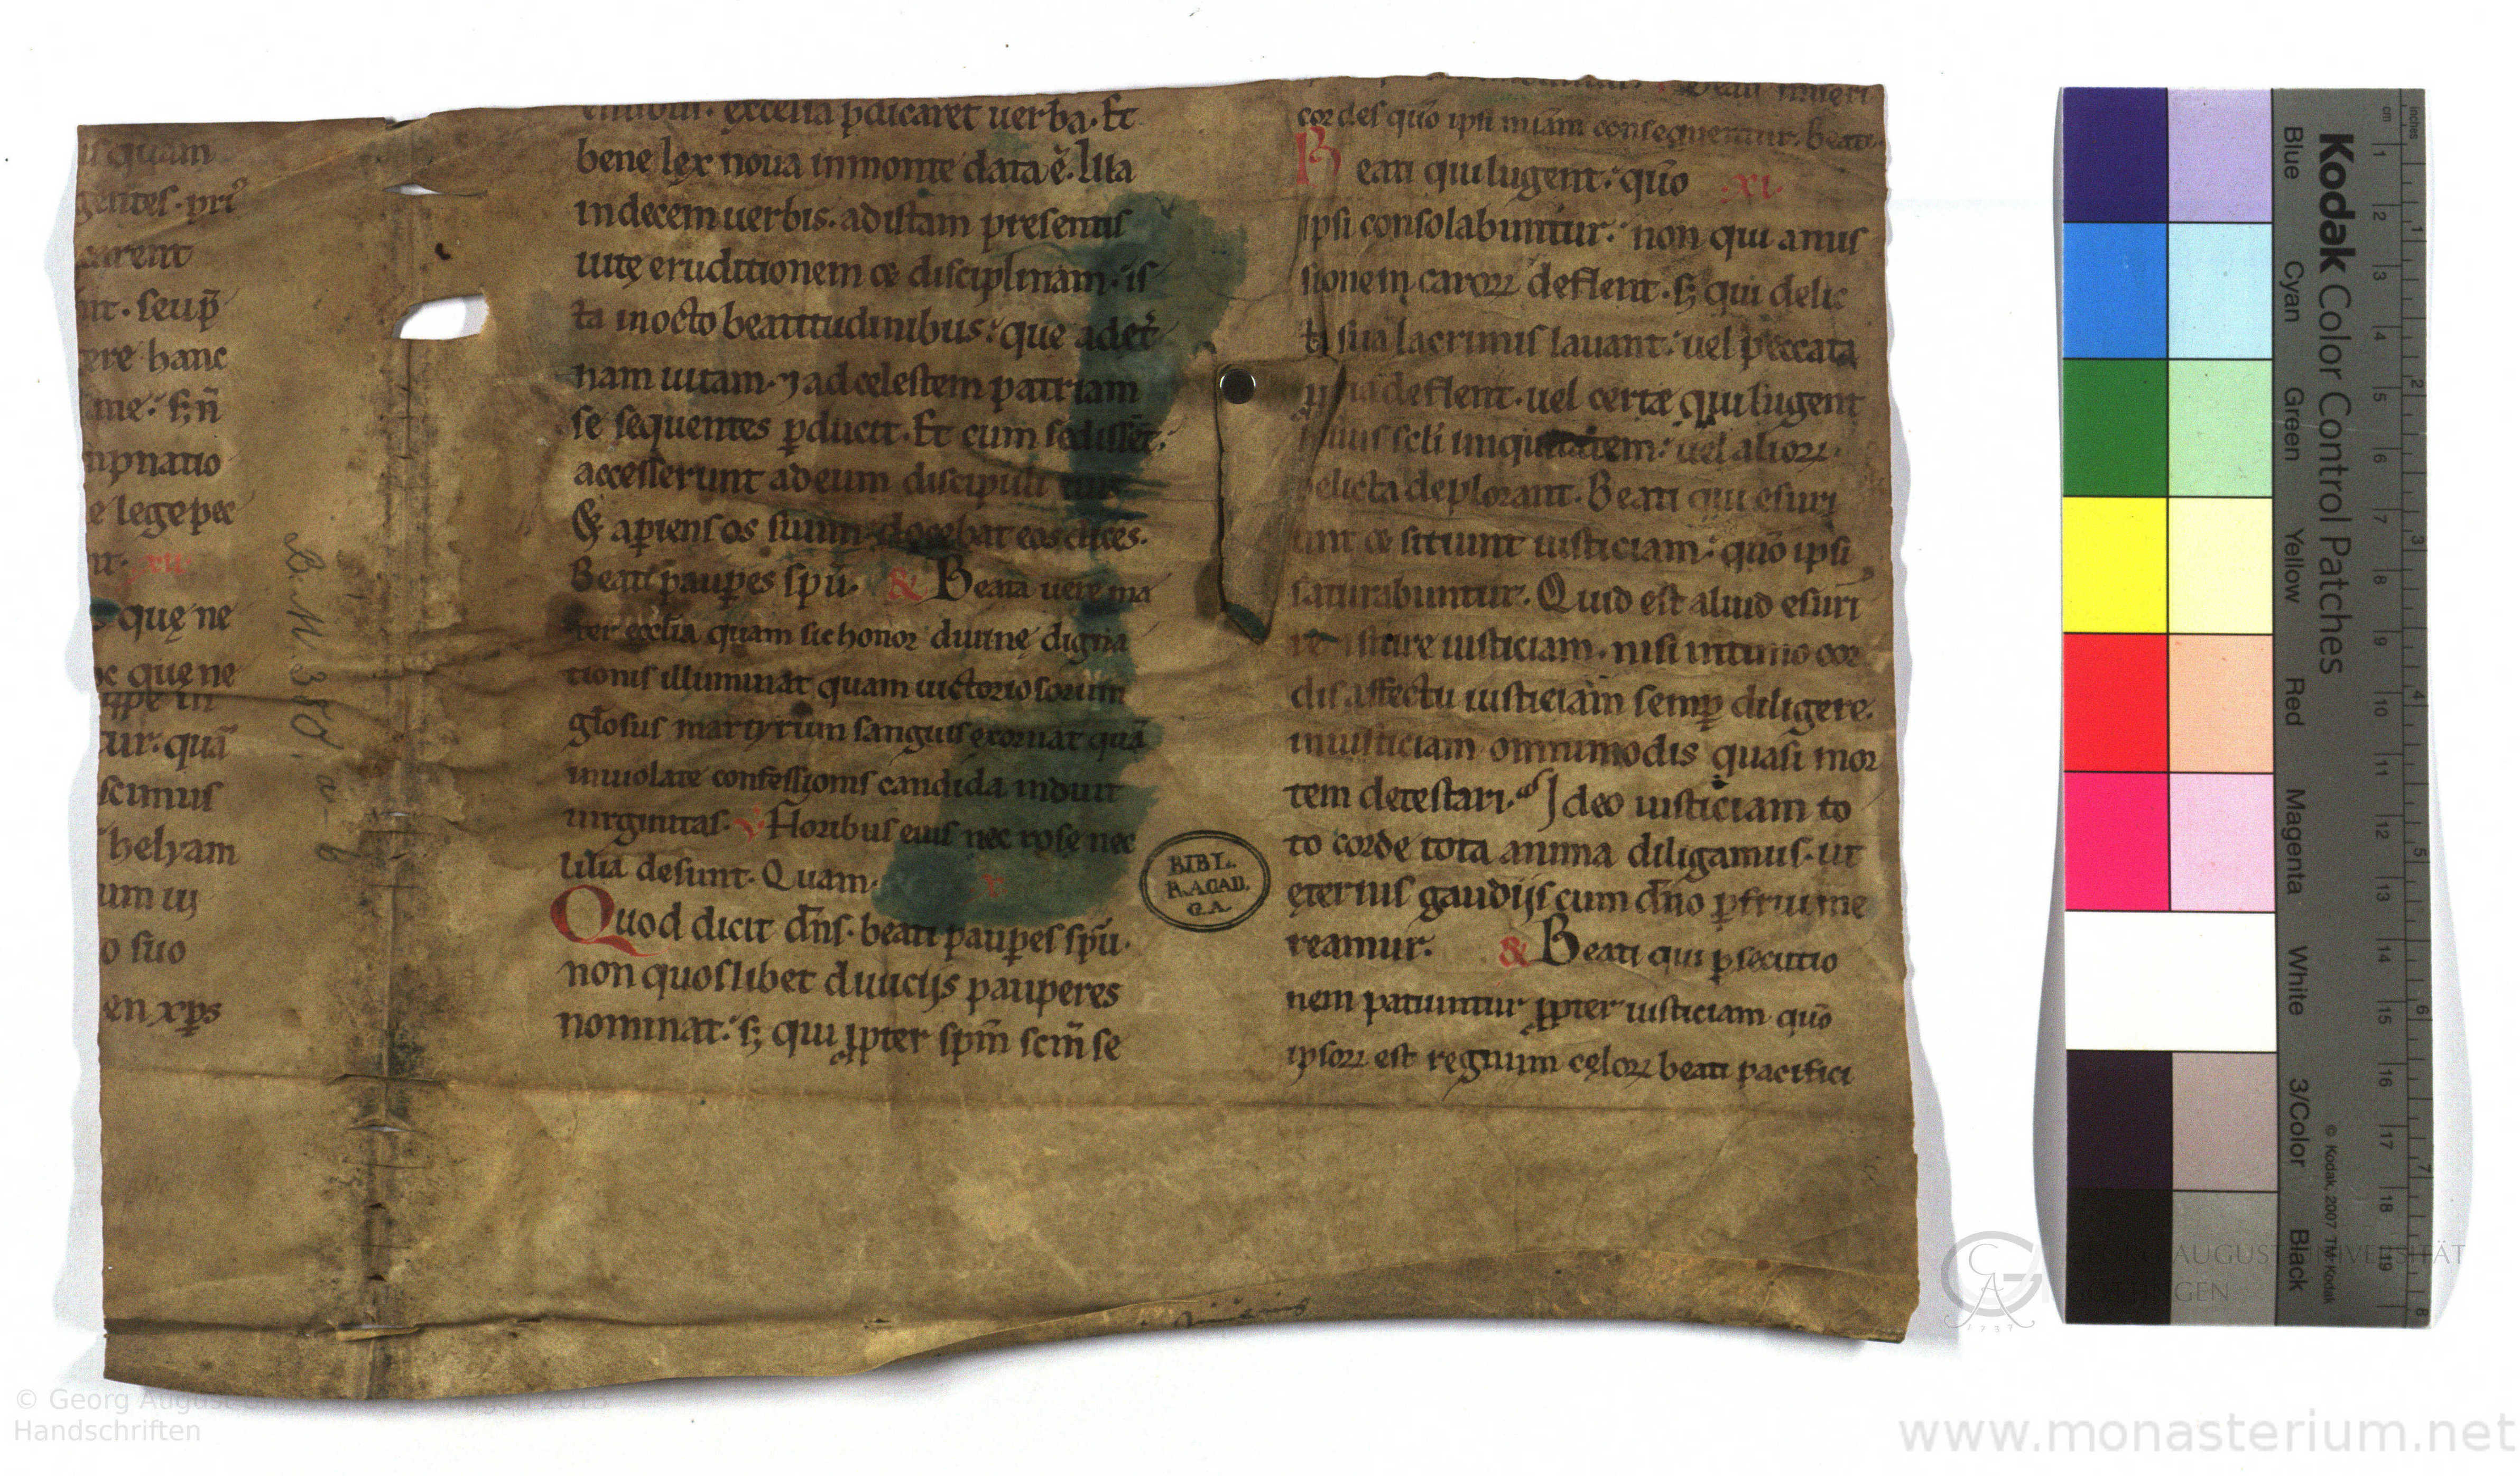 quam
gentes. pri᷒
carent
nt. seu p̄
ere hanc
me. sꝫ n̄
mpnatio
e lege pec
nt. xii.
quę ne
quę ne
ippe in
tur. quā
scimus
helyam
um iij
o suo
en xp̄s
B. N. 380. a-b
excelsa p̄dicaret uerba. Et
bene lex noua in monte data ē. Illa
in decem uerbis. ad istam presentis
uitę eruditionem & disciplinam. is
ta in octo beatitudinibus. que ad et̄
nam uitam. ⁊ ad celestem patriam
se sequentes ꝑducit. Et cum sedisset.
accesserunt ad eum discipuli eius
& apiens os suum docebat eos dices.
Beati pauꝑes spū. & Beata uere ma
ter eccl̄ia quam sic honor diuinę digna
tionis illuminat quam uictoriosorum
gl̄osus martyrum sanguis exornat quā
inuiolate confessionis candida induit
uirginitas. V Floribus eius nec rose nec
lilia desunt. Quam. x.
Quod dicit dn̄s. beati pauꝑes spū.
non quoslibet diuicijs pauperes
nominat. sꝫ qui ꝓpter spm̄ scm̄ se
Beati miseri
cordes quō ipsi miām consequentur. beati
Beati qui lugent. quō .xi.
ipsi consolabuntur. non qui amis
sionem caroꝝ deflent. sꝫ qui delic
ta sua lacrimis lauant. uel peccata
deflent. uel certe qui lugent
scl̄i iniquitatem. uel alioꝝ.
delicta deplorant. Beati qui esuri
unt & sitiunt iusticiam. quō ipsi
saturabuntur. Quid est aliud esuri
re sitire iusticiam. nisi intimo cor
dis affectu iusticiam semꝑ diligere.
iniusticiam omnimodis quasi mor
tem detestari. Ideo iusticiam to
to corde tota anima diligamus. ut
ęternis gaudijs cum dn̄o ꝑfrui me
reamur. & Beati qui ꝑsecutio
nem patiuntur ꝓpter iusticiam quō
ipsoꝝ est regnum cęloꝝ beati pacifici
BIBL.
R.ACAD.
G.A.
Kodak Color Control Patches
Blue Cyan Green Yellow Red Magenta White 3/Color Black
© Kodak, 2007 TM: Kodak
cm 1 2 3 4 5 6 7 8 9 10 11 12 13 14 15 16 17 18 19
inches 1 2 3 4 5 6 7 8
GEORG-AUGUST-UNIVERSITÄT
GÖTTINGEN
1737
© Georg August Universität Göttingen 2013
Handschriften
www.monasterium.net